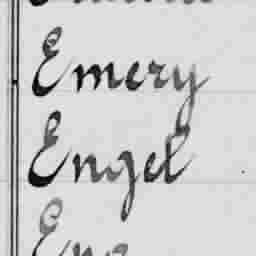 Emery
Engel